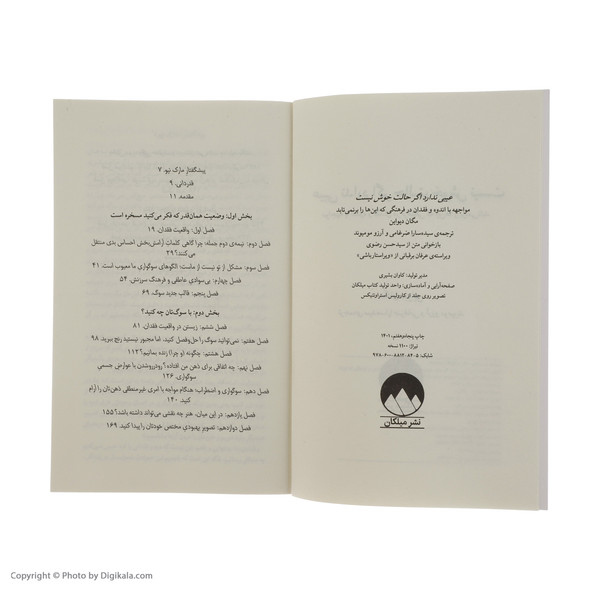 عیبی ندارد اگر حالت خوش نیست
مواجهه با اندوه و فقدان در فرهنگی که این‌ها را برنمی‌تابد
مگان دیواین
ترجمه‌ی سیده‌سارا ضرغامی و آرزو مومیوند
بازخوانی متن از سیدحسن رضوی
ویراسته‌ی عرفان برقبانی از «ویراستارباشی»
مدیر تولید: کاوان بشیری
صفحه‌آرایی و آماده‌سازی: واحد تولید کتاب میلکان
تصویر روی جلد از کارولیس استراوتنیکس
چاپ پنجاه‌وهفتم، ۱۴۰۱
تیراژ: ۱۱۰۰ نسخه
شابک: ۵-۸۲-۸۸۱۲-۶۰۰-۹۷۸
نشر میلکان
پیشگفتار مارک نپو: ۷
قدردانی. ۹
مقدمه. ۱۱
بخش اول: وضعیت همان‌قدر که فکر می‌کنید مسخره است
فصل اول: واقعیت فقدان. ۱۹
فصل دوم: نیمه‌ی دوم جمله: چرا گاهی کلماتِ آرامش‌بخش احساس بدی منتقل
می‌کنند؟ ۲۹
فصل سوم: مشکل از تو نیست از ماست: الگوهای سوگواری ما معیوب است. ۴۱
فصل چهارم: بی‌سوادی عاطفی و فرهنگ سرزنش. ۵۴
فصل پنجم: قالب جدید سوگ. ۶۹
بخش دوم: با سوگ‌تان چه کنید؟
فصل ششم: زیستن در واقعیت فقدان. ۸۱
فصل هفتم: نمی‌توانید سوگ را حل‌وفصل کنید، اما مجبور نیستید رنج ببرید. ۹۸
فصل هشتم: چگونه (و چرا) زنده بمانیم؟ ۱۱۳
فصل نهم: چه اتفاقی برای ذهن من افتاده؟ رودررو‌شدن با عوارض جسمی
سوگواری. ۱۲۶
فصل دهم: سوگواری و اضطراب: هنگام مواجه با امری غیرمنطقی ذهن‌تان را آرام
کنید. ۱۴۰
فصل یازدهم: در این میان، هنر چه نقشی می‌تواند داشته باشد؟ ۱۵۵
فصل دوازدهم: تصویر بهبودی مختص خودتان را پیدا کنید. ۱۶۹
Copyright © Photo by Digikala.com